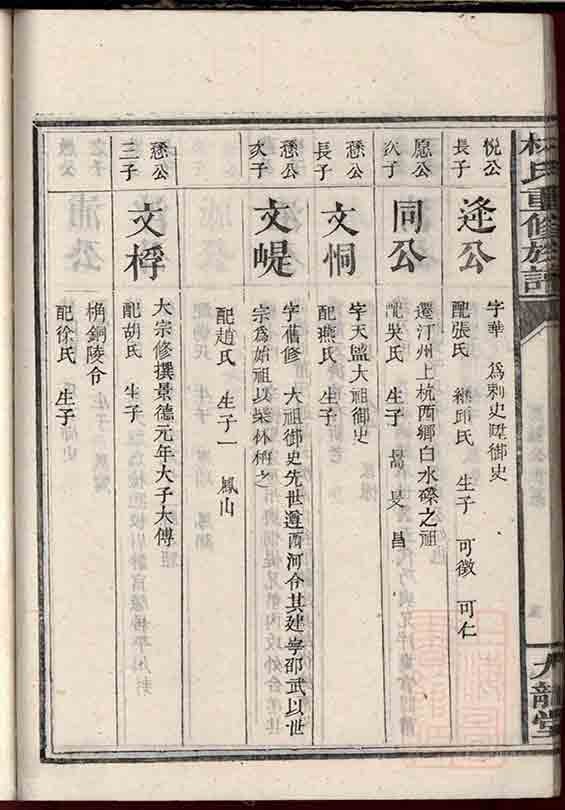 林氏重修族譜
九龍堂
悅公
長子
逢公
字華 為刺史陞御史
配張氏 繼邱氏 生子 可徵 可仁
愿公
次子
同公
遷汀州上杭西鄉白水磜之祖
配吳氏 生子 暠 旻 昌
懸公
長子
文恫
字天監大祖御史
配燕氏 生子
懸公
次子
文崼
字舊修 大祖御史先世遵西河令其建寧邵武以世
宗為始祖以柴林柄之
配趙氏 生子一 鳳山
懸公
三子
文桴
大宗修撰景德元年大子大傳
配胡氏 生子
桷銅陵令
配徐氏 生子